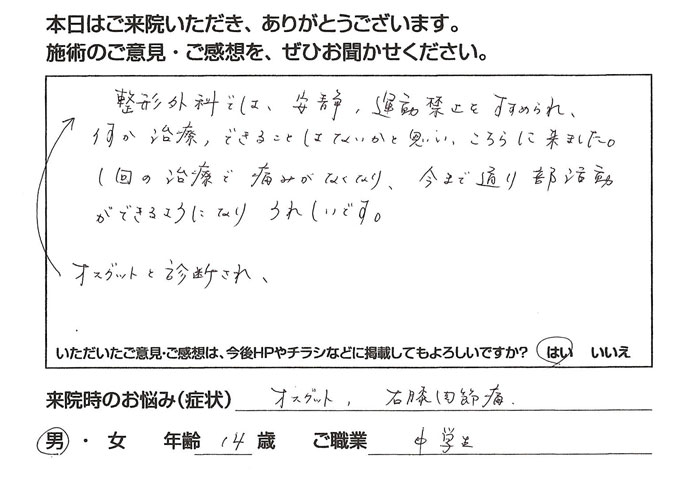 本日はご来院いただき、ありがとうございます。
施術のご意見・ご感想を、ぜひお聞かせください。
整形外科では、安静，運動禁止をすすめられ、
何か治療，できることはないかと思い、こちらに来ました。
1回の治療で痛みがなくなり、今まで通り部活動
ができるようになりうれしいです。
オスグットと診断され、
いただいたご意見・ご感想は、今後HPやチラシなどに掲載してもよろしいですか? はい いいえ
来院時のお悩み(症状) オスグット，右膝関節痛.
男・女 年齢 14 歳 ご職業 中学生